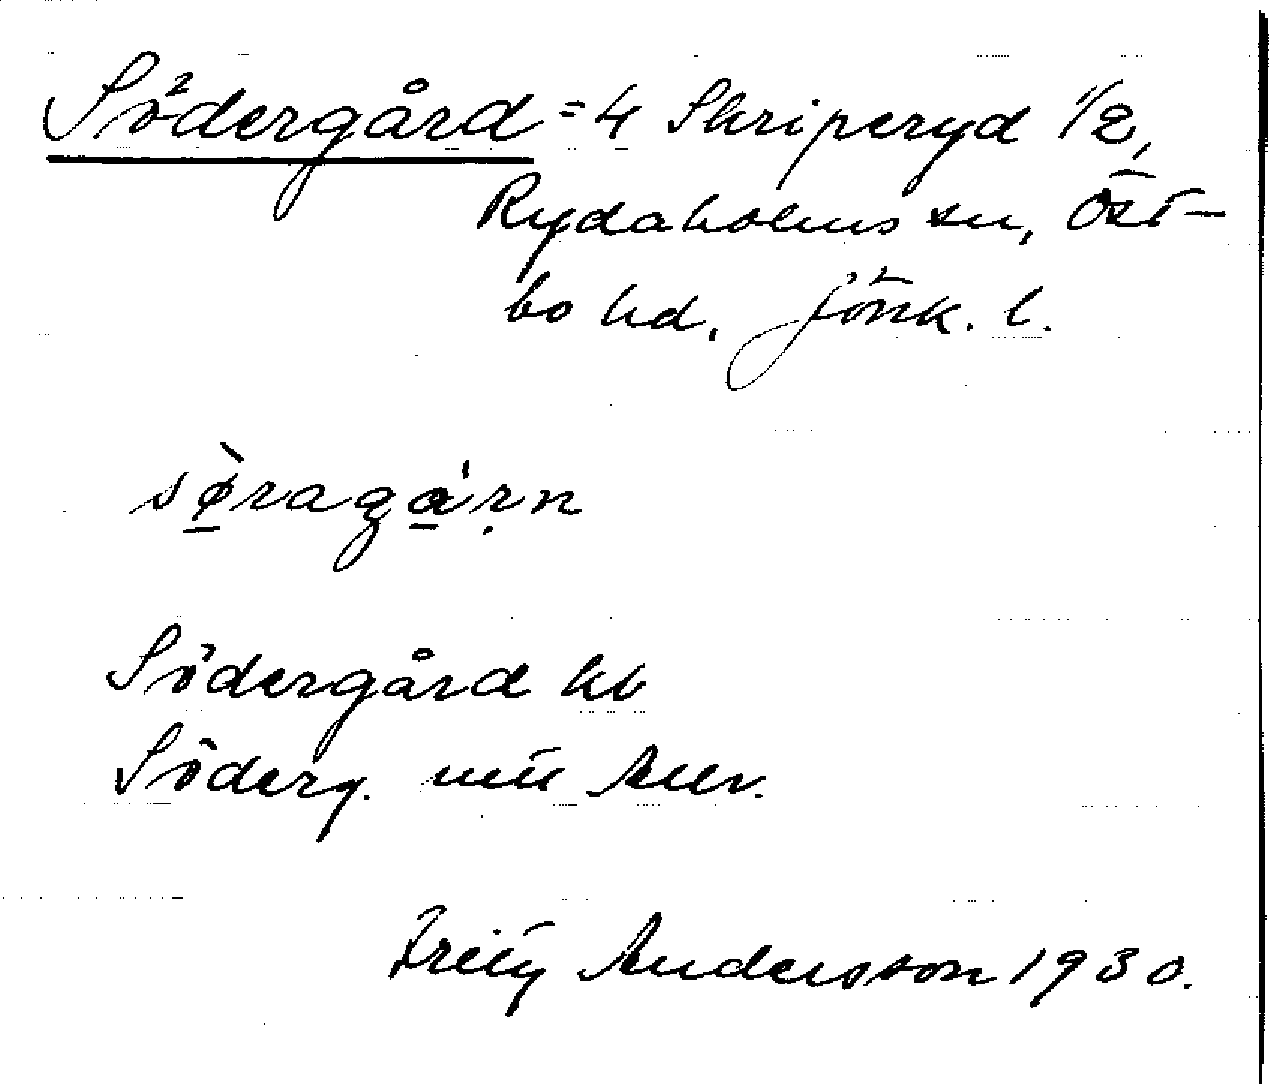 Södergård = 4 Skriperyd 1/2,
Rydaholms sn, Öst-
bo hd, Jönk. l.
sø̀ragá̱ṛn
Södergård kb
Söderg.
Andersson 1930.